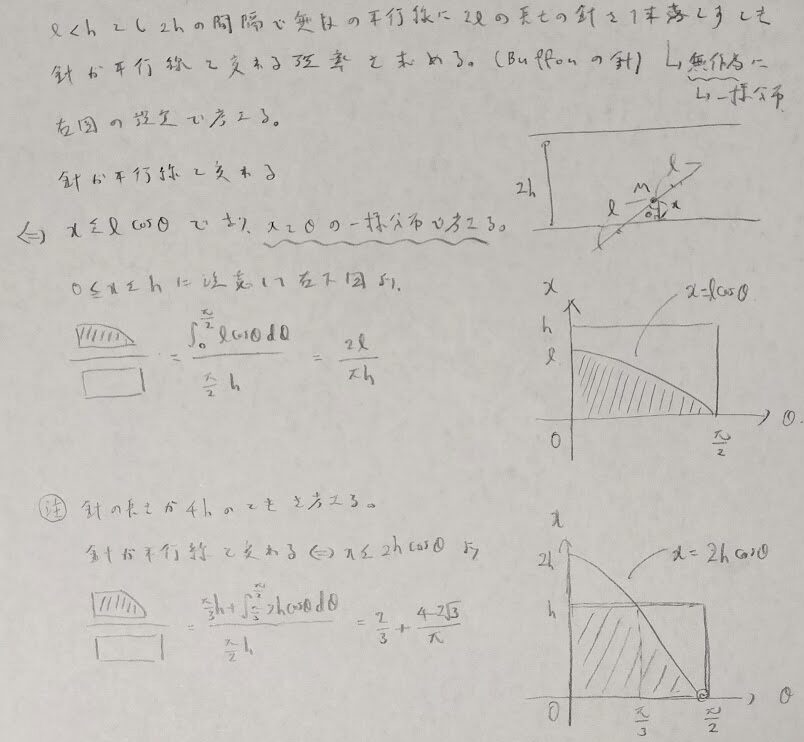 l<hとし 2hの間隔で無数の平行線に 2lの長さの針を1本落とすとき
針が平行線と交わる確率を求める。(Buffonの針) ↳ 無作為に
↳ 一様分布
右図の設定で考える。
針が平行線と交わる
⇔ x≦lcosθ であり、xとθの一様分布で考える。
2h
M
l
l
θ
x
0≦x≦hに注意して右下図より、
= ∫₀^{π/2} lcosθdθ / (π/2)h = 2l/πh
x
x=lcosθ
h
l
0
π/2
θ
注 針の長さが4hのときを考える。
針が平行線と交わる⇔x≦2hcosθ より
= ((π/3)h+∫_{π/3}^{π/2} 2hcosθdθ) / (π/2)h = 2/3 + (4-2√3)/π
x
x=2hcosθ
2h
h
0
π/3
π/2
θ